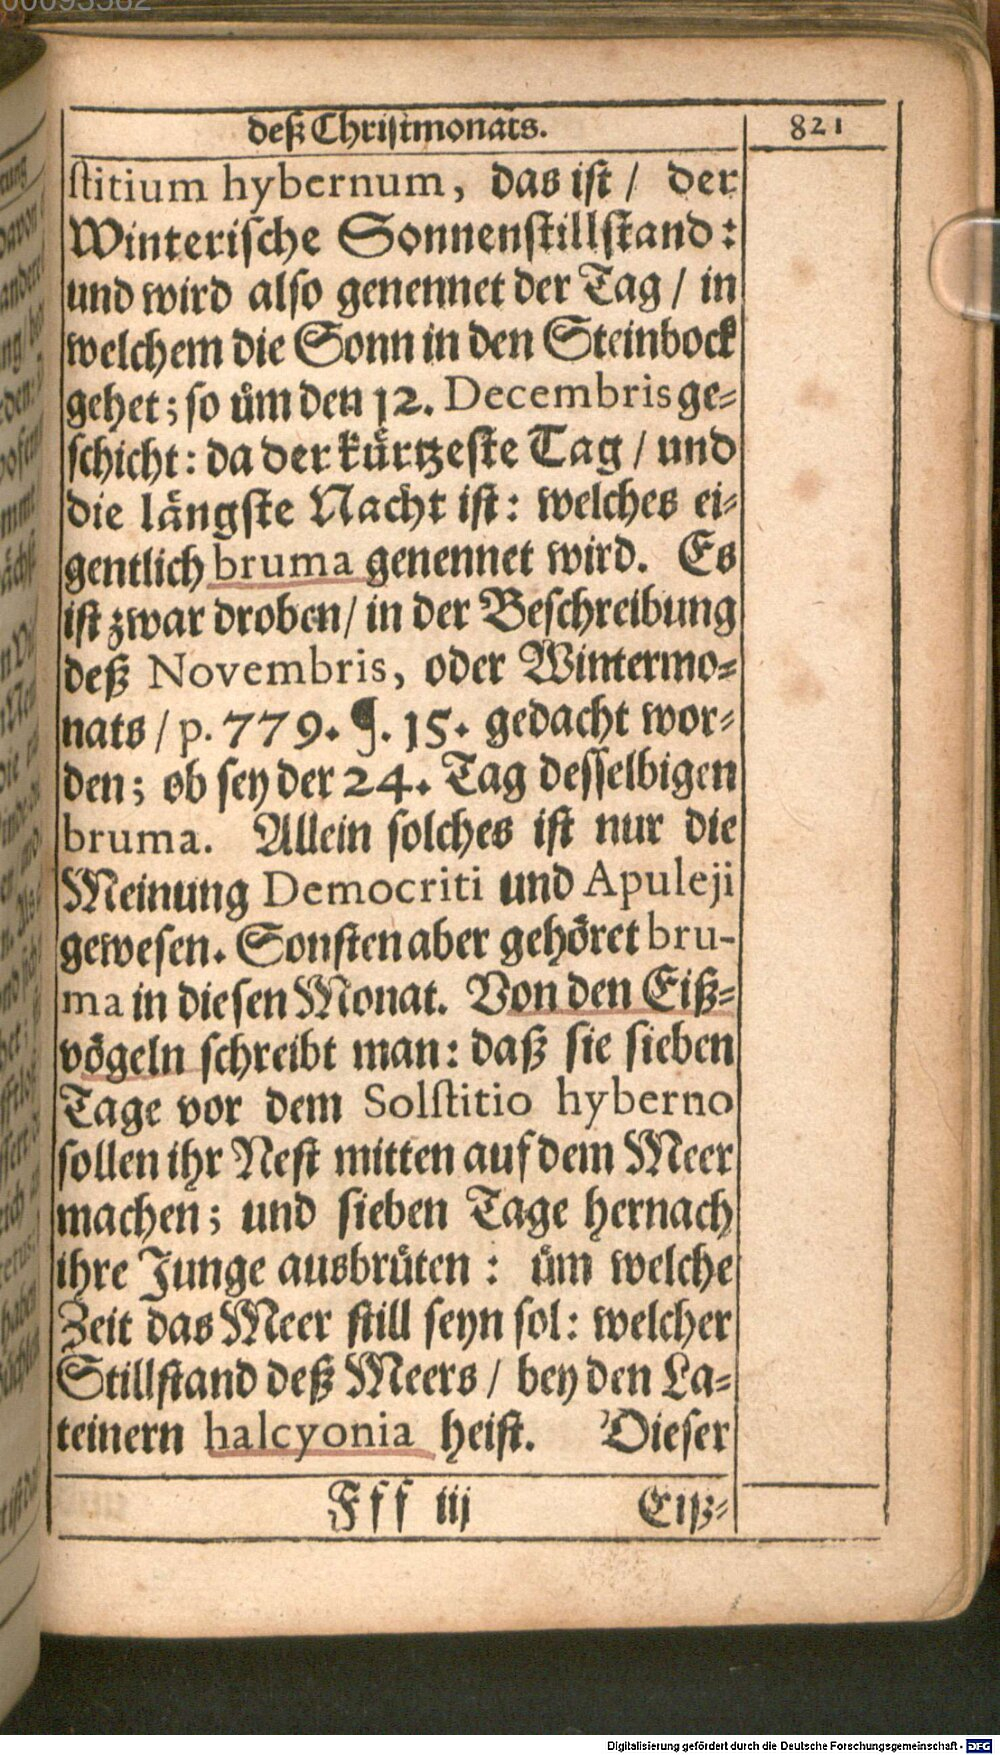 00093582
deß Christmonats.
821
stitium hybernum, das ist / der
Winterische Sonnenstillstand:
und wird also genennet der Tag / in
welchem die Sonn in den Steinbock
gehet; so üm den 12. Decembris ge-
schicht: da der kürtzeste Tag / und
die längste Nacht ist: welches ei-
gentlich bruma genennet wird. Es
ist zwar droben / in der Beschreibung
deß Novembris, oder Wintermo-
nats / p. 779. ¶. 15. gedacht wor-
den; ob sey der 24. Tag desselbigen
bruma. Allein solches ist nur die
Meinung Democriti und Apuleji
gewesen. Sonsten aber gehöret bru-
ma in diesen Monat. Von den Eiß-
vögeln schreibt man: daß sie sieben
Tage vor dem Solstitio hyberno
sollen ihr Nest mitten auf dem Meer
machen; und sieben Tage hernach
ihre Junge ausbrüten: üm welche
Zeit das Meer still seyn sol: welcher
Stillstand deß Meers / bey den La-
teinern halcyonia heist. Dieser
Fff iij
Eiß-
Digitalisierung gefördert durch die Deutsche Forschungsgemeinschaft - DFG